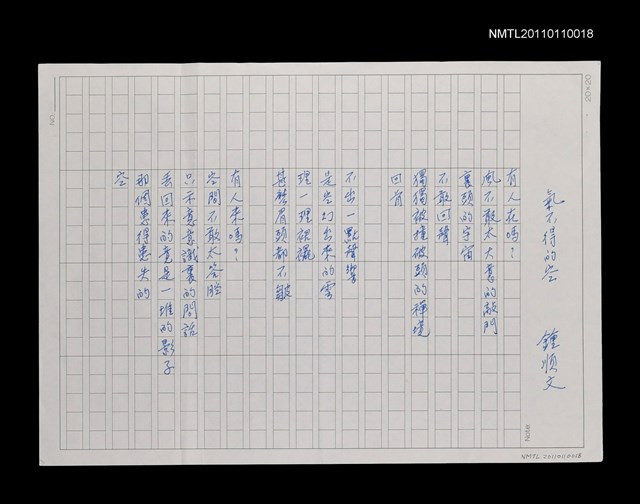 NMTL20110110018
20×20
氣不得的空
鍾順文
有人在嗎？
風不敢太大意的敲門
裏頭的宇宙
不敢回聲
獨獨被撞破頭的禪境
回首
不出一點聲響
是空幻出來的雲
理一理裙襬
甚麼眉頭都不皺
有人來嗎？
空間不敢太答腔
只示意意識裏的問話
丟回來的竟是一堆的影子
那個患得患失的
空
NO.
Note
NMTL 20110110018